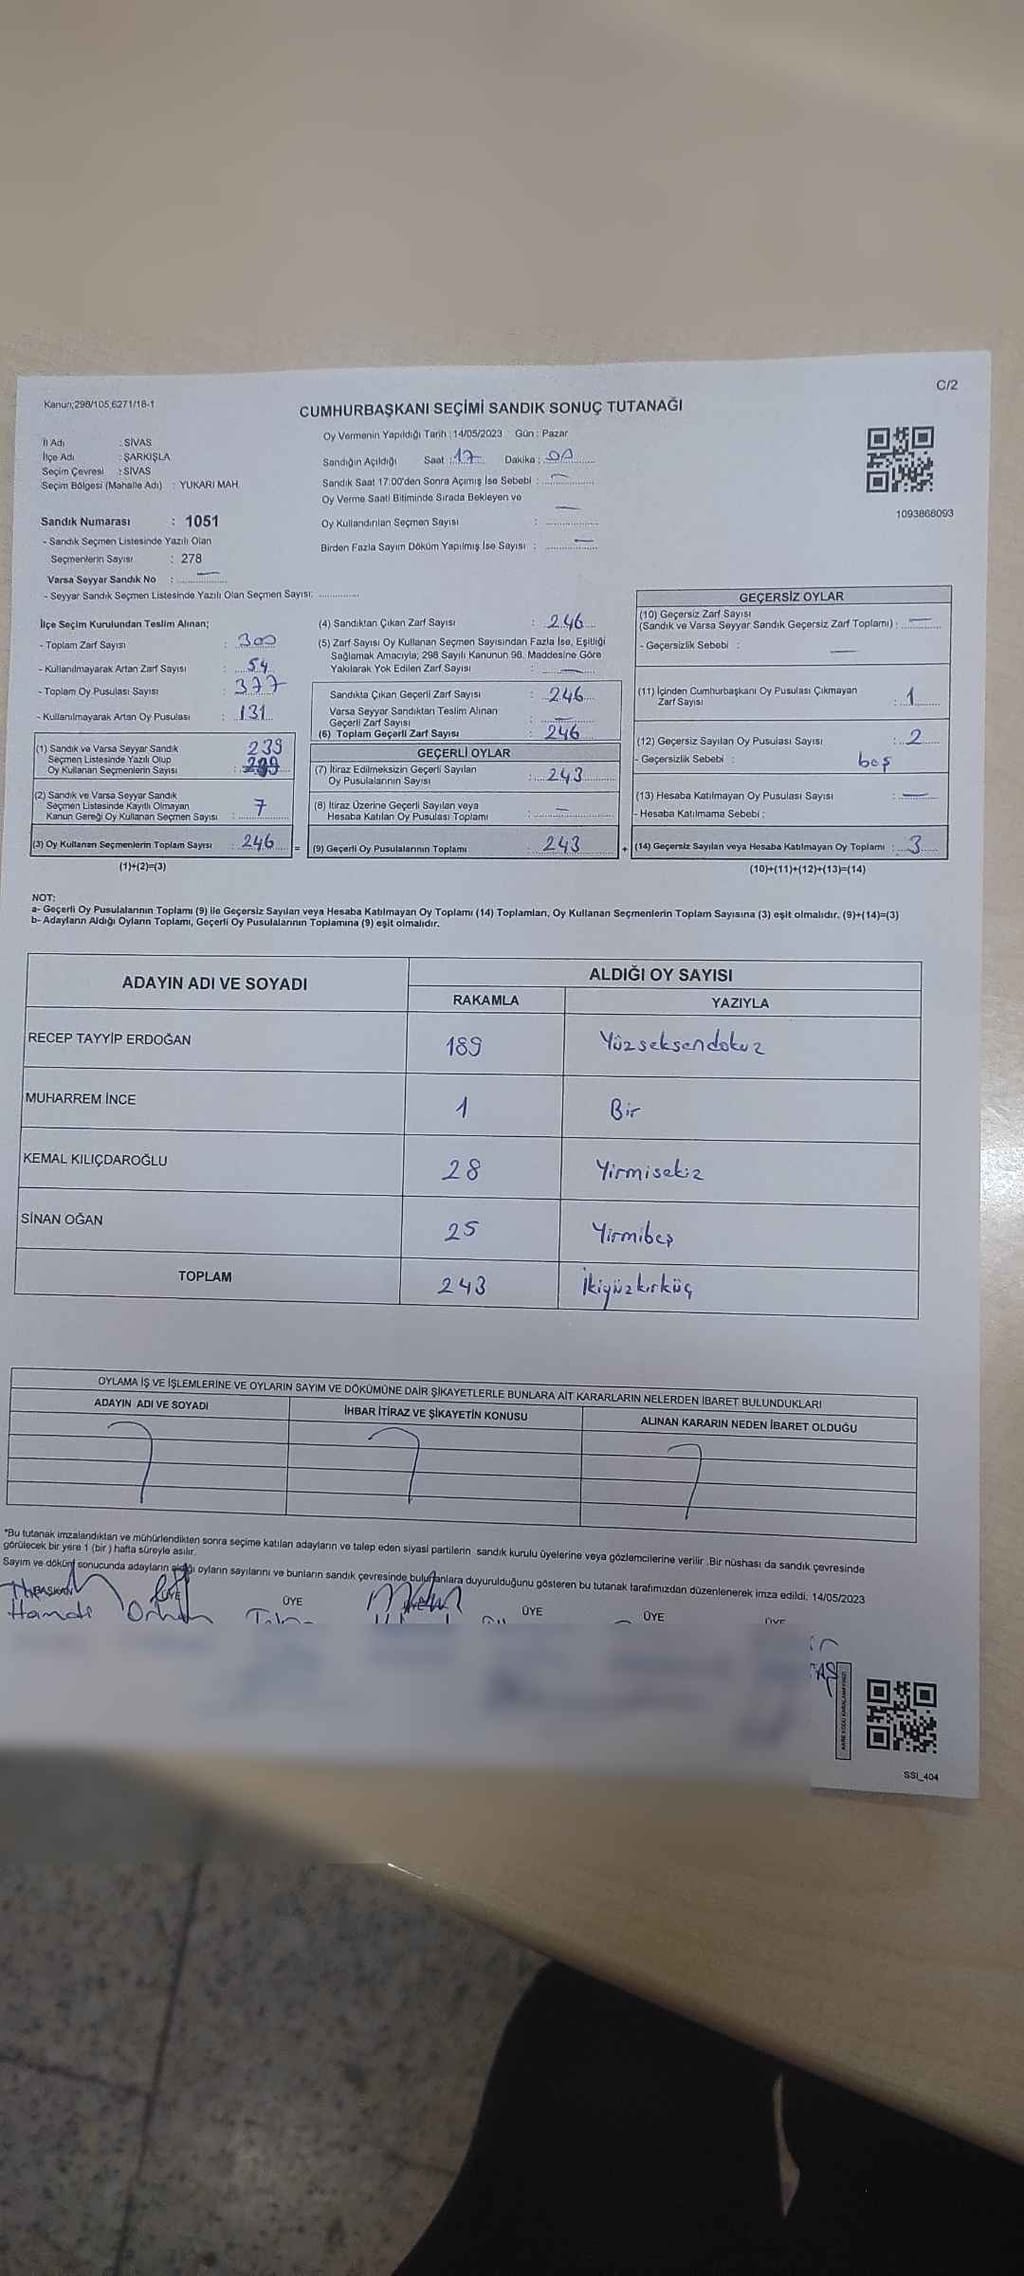 Kanun;298/105,6271/18-1
C/2
CUMHURBAŞKANI SEÇİMİ SANDIK SONUÇ TUTANAĞI
İl Adı : SİVAS
İlçe Adı : ŞARKIŞLA
Seçim Çevresi : SİVAS
Seçim Bölgesi (Mahalle Adı) : YUKARI MAH.
Sandık Numarası : 1051
- Sandık Seçmen Listesinde Yazılı Olan
Seçmenlerin Sayısı : 278
Varsa Seyyar Sandık No : —
- Seyyar Sandık Seçmen Listesinde Yazılı Olan Seçmen Sayısı:
Oy Vermenin Yapıldığı Tarih : 14/05/2023 Gün : Pazar
Sandığın Açıldığı Saat : 17 Dakika :
Sandık Saat 17.00'den Sonra Açımış İse Sebebi : —
Oy Verme Saati Bitiminde Sırada Bekleyen ve
Oy Kullandırılan Seçmen Sayısı : —
Birden Fazla Sayım Döküm Yapılmış İse Sayısı : —
1093868093
İlçe Seçim Kurulundan Teslim Alınan;
- Toplam Zarf Sayısı : 300
- Kullanılmayarak Artan Zarf Sayısı : 54
- Toplam Oy Pusulası Sayısı : 377
- Kullanılmayarak Artan Oy Pusulası : 131
(1) Sandık ve Varsa Seyyar Sandık
Seçmen Listesinde Yazılı Olup
Oy Kullanan Seçmenlerin Sayısı : 239
(2) Sandık ve Varsa Seyyar Sandık
Seçmen Listasinde Kayıtlı Olmayan
Kanun Gereği Oy Kullanan Seçmen Sayısı : 7
(3) Oy Kullanan Seçmenlerin Toplam Sayısı : 246 =
(1)+(2)=(3)
(4) Sandıktan Çıkan Zarf Sayısı : 246
(5) Zarf Sayısı Oy Kullanan Seçmen Sayısından Fazla İse, Eşitliği
Sağlamak Amacıyla; 298 Sayılı Kanunun 98. Maddesine Göre
Yakılarak Yok Edilen Zarf Sayısı : —
Sandıkta Çıkan Geçerli Zarf Sayısı : 246
Varsa Seyyar Sandıktan Teslim Alınan
Geçerli Zarf Sayısı : —
(6) Toplam Geçerli Zarf Sayısı : 246
GEÇERLİ OYLAR
(7) İtiraz Edilmeksizin Geçerli Sayılan
Oy Pusulalarının Sayısı : 243
(8) İtiraz Üzerine Geçerli Sayılan veya
Hesaba Katılan Oy Pusulası Toplamı : —
(9) Geçerli Oy Pusulalarının Toplamı : 243 +
GEÇERSİZ OYLAR
(10) Geçersiz Zarf Sayısı
(Sandık ve Varsa Seyyar Sandık Geçersiz Zarf Toplamı) : —
- Geçersizlik Sebebi : —
(11) İçinden Cumhurbaşkanı Oy Pusulası Çıkmayan
Zarf Sayısı : 1
(12) Geçersiz Sayılan Oy Pusulası Sayısı : 2
- Geçersizlik Sebebi : boş
(13) Hesaba Katılmayan Oy Pusulası Sayısı : —
- Hesaba Katılmama Sebebi :
(14) Geçersiz Sayılan veya Hesaba Katılmayan Oy Toplamı : 3
(10)+(11)+(12)+(13)=(14)
NOT:
a- Geçerli Oy Pusulalarının Toplamı (9) ile Geçersiz Sayılan veya Hesaba Katılmayan Oy Toplamı (14) Toplamları, Oy Kullanan Seçmenlerin Toplam Sayısına (3) eşit olmalıdır. (9)+(14)=(3)
b- Adayların Aldığı Oyların Toplamı, Geçerli Oy Pusulalarının Toplamına (9) eşit olmalıdır.
ADAYIN ADI VE SOYADI
ALDIĞI OY SAYISI
RAKAMLA YAZIYLA
RECEP TAYYİP ERDOĞAN 189 Yüzseksendokuz
MUHARREM İNCE 1 Bir
KEMAL KILIÇDAROĞLU 28 Yirmisekiz
SİNAN OĞAN 25 Yirmibeş
TOPLAM 243 İkiyüzkırküç
OYLAMA İŞ VE İŞLEMLERİNE VE OYLARIN SAYIM VE DÖKÜMÜNE DAİR ŞİKAYETLERLE BUNLARA AİT KARARLARIN NELERDEN İBARET BULUNDUKLARI
ADAYIN ADI VE SOYADI İHBAR İTİRAZ VE ŞİKAYETİN KONUSU ALINAN KARARIN NEDEN İBARET OLDUĞU
*Bu tutanak imzalandıktan ve mühürlendikten sonra seçime katılan adayların ve talep eden siyasi partilerin sandık kurulu üyelerine veya gözlemcilerine verilir .Bir nüshası da sandık çevresinde
görülecek bir yere 1 (bir ) hafta süreyle asılır.
Sayım ve döküm sonucunda adayların aldığı oyların sayılarını ve bunların sandık çevresinde bulunanlara duyurulduğunu gösteren bu tutanak tarafımızdan düzenlenerek imza edildi. 14/05/2023
BAŞKAN ÜYE ÜYE ÜYE ÜYE
Hamdi Orhan
SSI_404